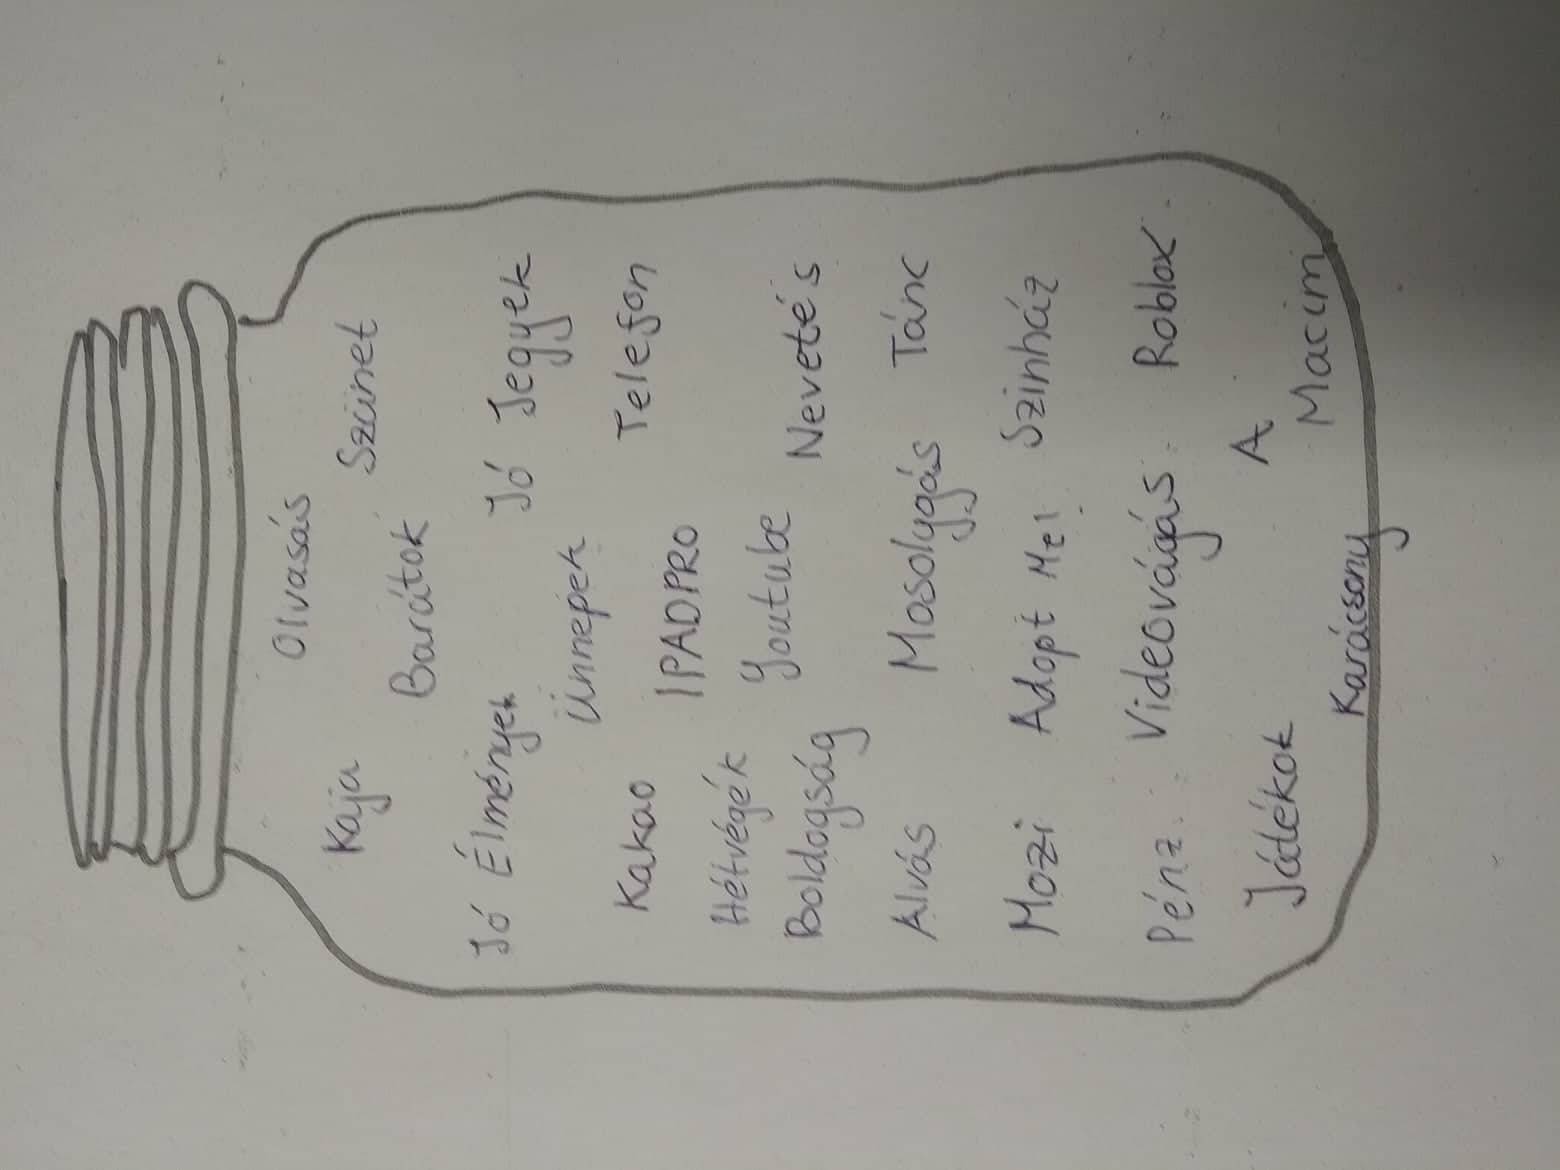 Olvasás
Kaja Szünet
Barátok
Jó Élmények Jó Jegyek
Ünnepek
Kakao Telefon
IPADPRO
Hétvégék Youtube
Boldogság Nevetés
Alvás Mosolygás Tánc
Mozi Adopt Me! Szinház
Pénz Videovágás Roblox
Játékok A
Macim
Karácsony